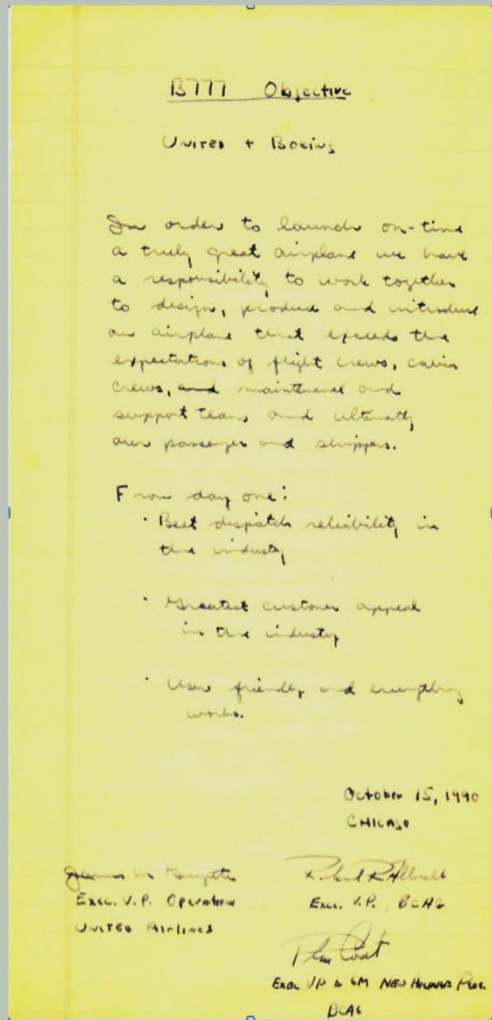 B777 Objective
United + Boeing
In order to launch on-time
a truly great airplane we have
a responsibility to work together
to design, produce and introduce
an airplane that exceeds the
expectations of flight crews, cabin
crews, and maintenance and
support teams and ultimately
our passengers and shippers.
From day one:
· Best dispatch reliability in
the industry
· Greatest customer appeal
in the industry
· User friendly and everything
works.
October 15, 1990
CHICAGO
Exec. V.P. Operations
United Airlines
Exec. V.P. BCAG
Exec VP & GM New Airplane
BCAG